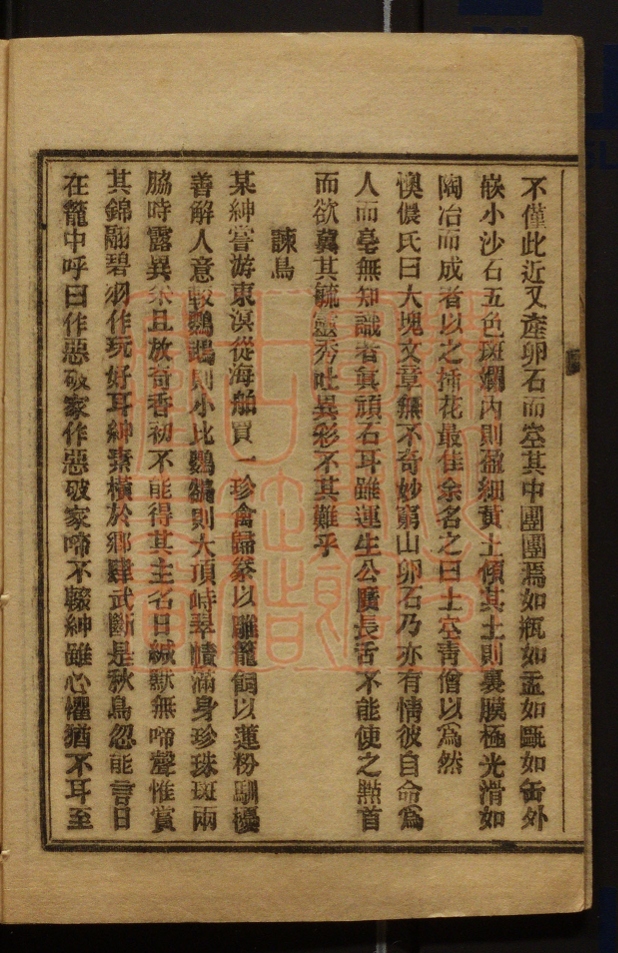 不僅此近又産卵石而空其中團團焉如瓶如盂如甌如缶外
嵌小沙石五色斑斕内則盈細黄土傾其土則裏膜極光滑如
陶冶而成者以之揷花最佳余名之曰土空靑僧以爲然
懊儂氏曰大塊文章無不奇妙窮山卵石乃亦有情彼自命爲
人而毫無知識者眞頑石耳雖運生公廣長舌不能使之㸃首
而欲冀其毓靈秀吐異彩不其難乎
諫鳥
某紳嘗游東溟從海舶買一珍禽歸豢以雕籠飼以蓮粉馴擾
善解人意較鸚鵡則小比鸚鵒則大頂峙翠幘滿身珍珠斑兩
脇時露異采且放奇香初不能得其主名日緘默無啼聲惟賞
其錦翮碧羽作玩好耳紳素横於鄕肆武斷是秋鳥忽能言日
在籠中呼曰作惡破家作惡破家啼不輟紳雖心懼猶不耳至